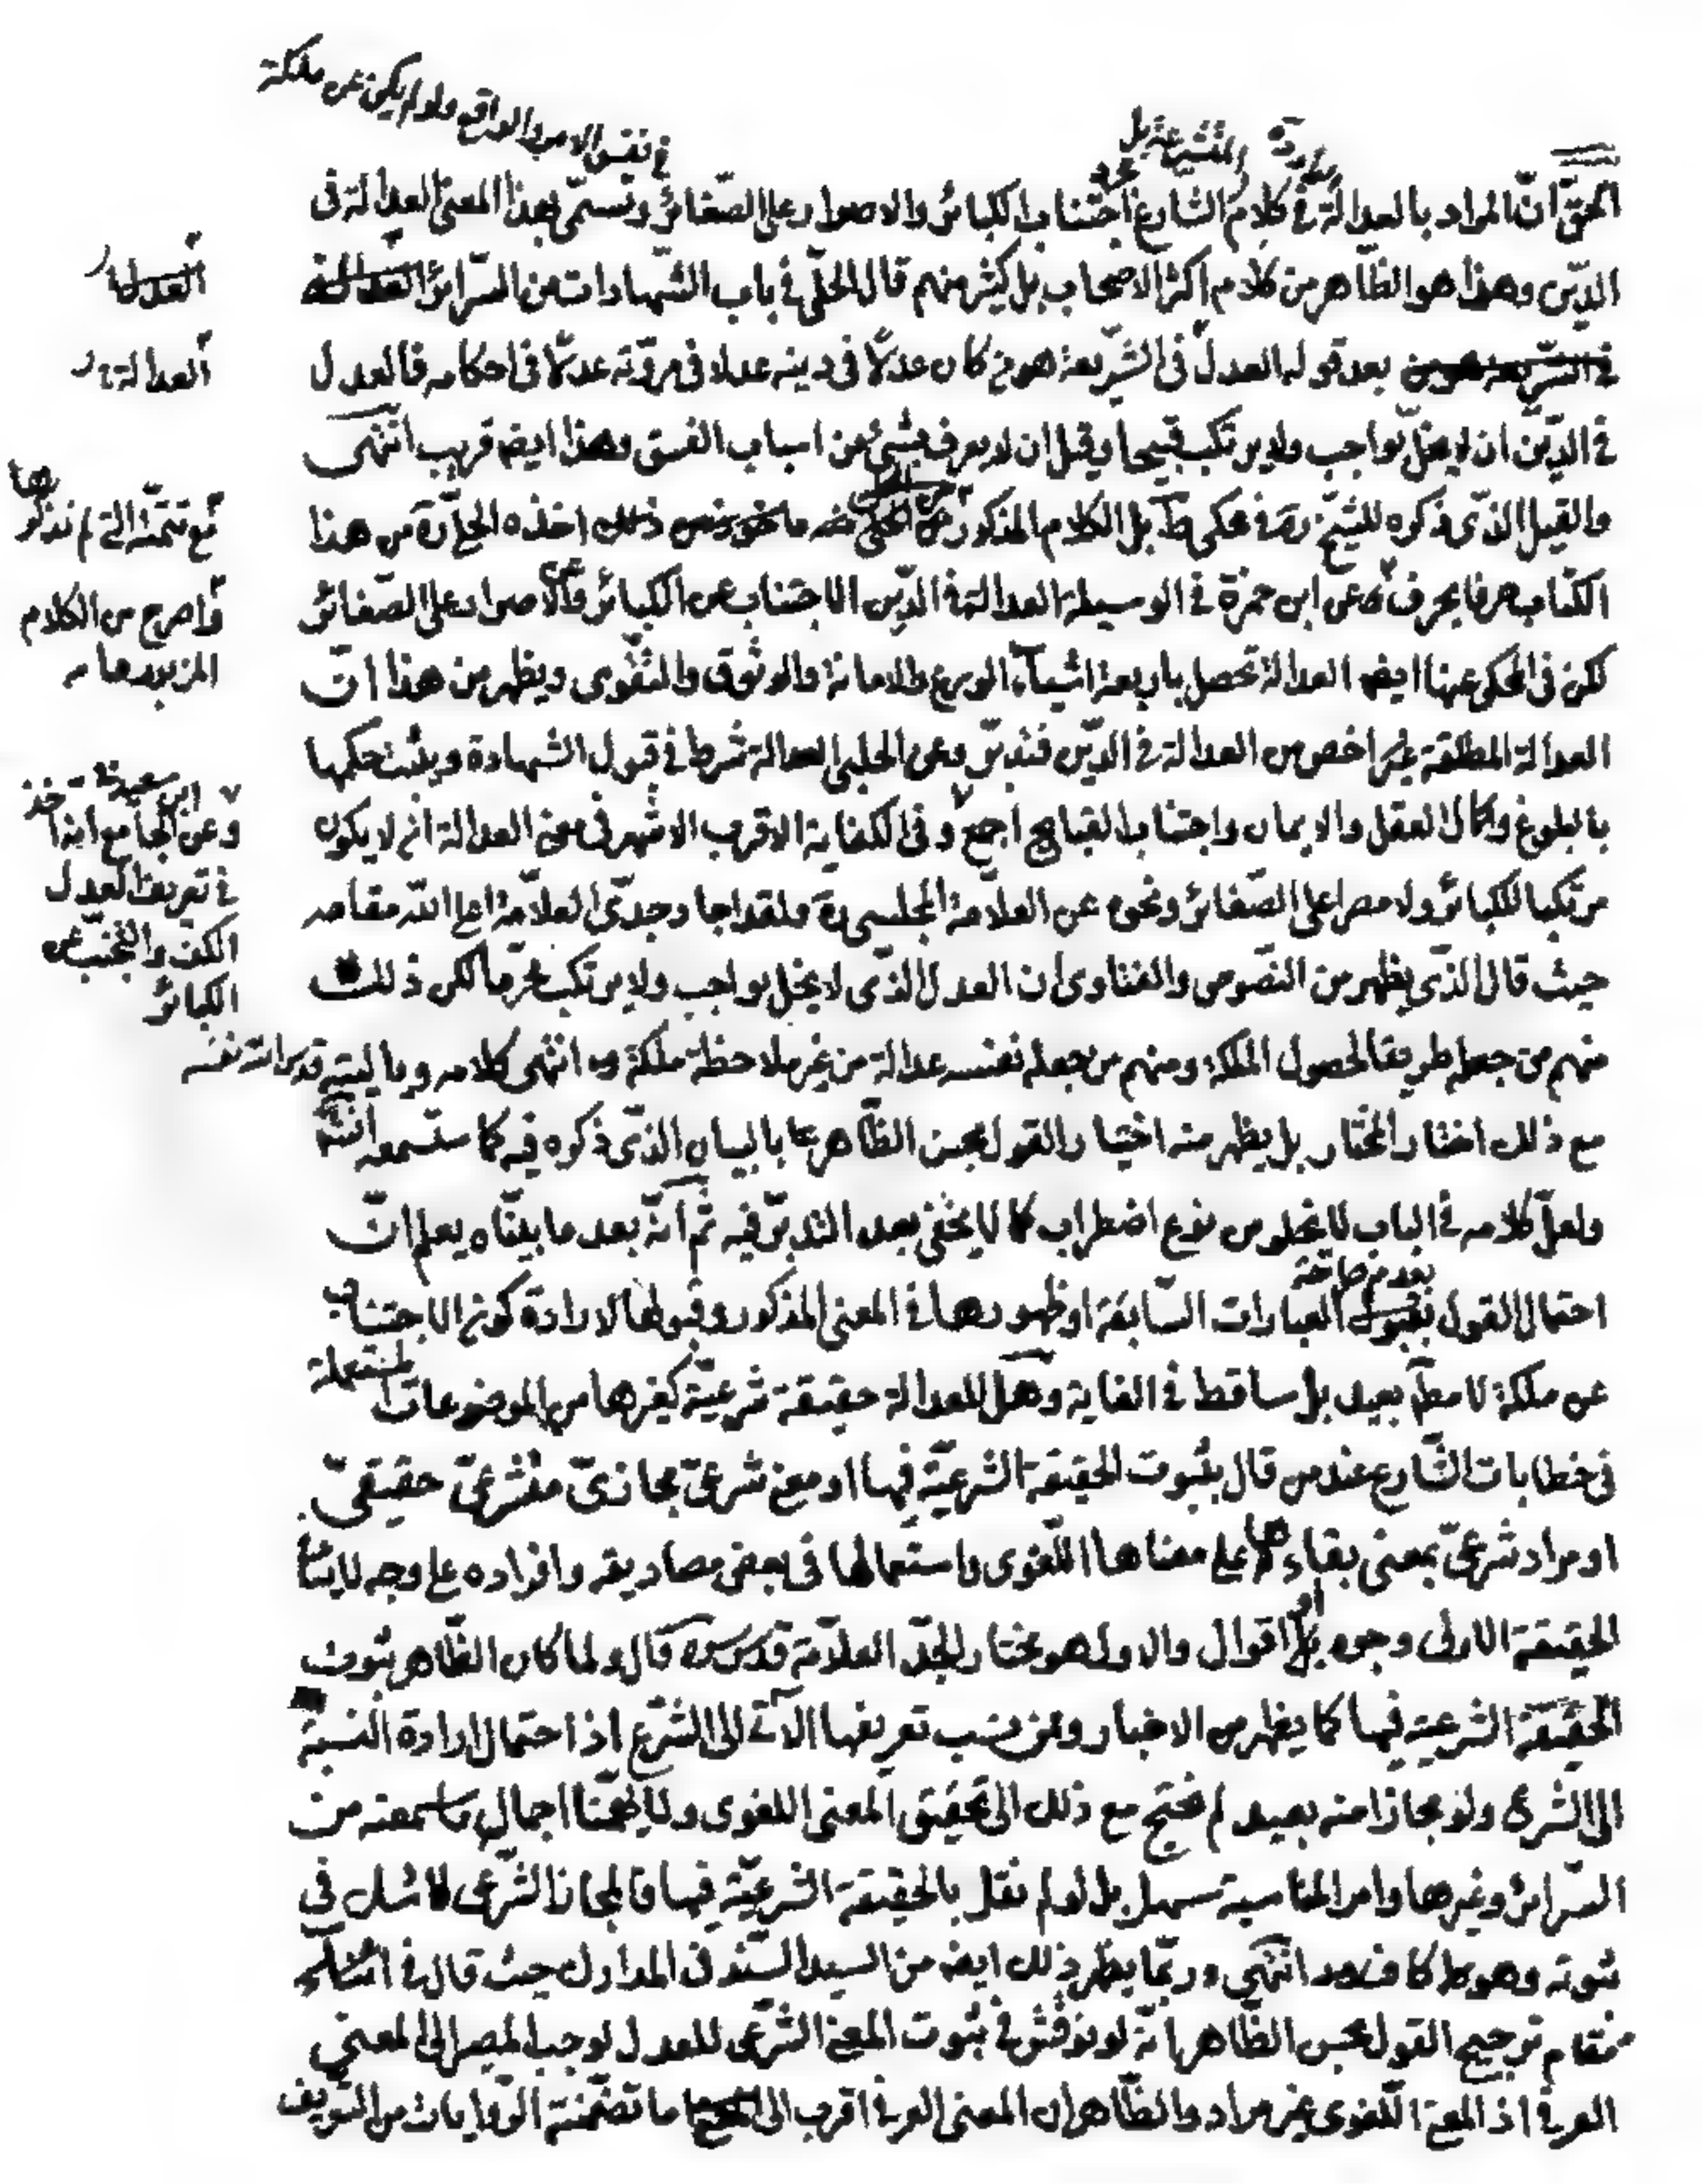 في نفس الامر والواقع ولو لم يكن عن ملكة
المتشرعة بل
الحق ان المراد بالعدالة في كلام الشارع اجتناب الكبائر والاصرار على الصغائر وتسمى بهذا المعنى العدالة في
الدين وهذا هو الظاهر من كلام اكثر الاصحاب بل كثير منهم قال الحلي في باب الشهادات من السرائر العدالة
في الشريعة هو من بعد قوله العدل في الشريعة هو من كان عدلا في دينه عدلا في مروته عدلا في احكامه فالعدل
في الدين ان لا يخل بواجب ولا يرتكب قبيحا وقيل ان لا يعرف بشيء من اسباب الفسق وهذا ايضا قريب انتهى
والقيل الذي ذكره للشيخ ره في محكي ط بل الكلام المذكور من الحلي ذلك اخذه الحلي ره من هذا
الكتاب حرفا بحرف وعن ابن حمزة في الوسيلة العدالة في الدين الاجتناب عن الكبائر والاصرار على الصغائر
لكن في المحكي عنها ايضا العدالة تحصل باربعة اشياء الورع والامانة والوثوق والتقوى ويظهر من هذا ان
العدالة المطلقة اخص من العدالة في الدين فتدبر وعن الحلبي العدالة شرط في قبول الشهادة ويثبت حكمها
بالبلوغ وكمال العقل والايمان واجتناب القبايح اجمع وفي الكفاية الاقرب الاشهر في معنى العدالة ان لا يكون
مرتكبا للكبائر ولا مصرا على الصغائر ونحوه عن العلامة المجلسي ره ولقد اجاد جدي العلامة اعلى الله مقامه
حيث قال الذي يظهر من النصوص والفتاوى ان العدل الذي لا يخل بواجب ولا يرتكب محرما لكن ذلك
منهم من جعله طريقا لحصول الملكة ومنهم من جعله نفسه عدالة من غير ملاحظة ملكة وه انتهى كلامه ويا ليته قدس الله نفسه
مع ذلك اختار المختار بل يظهر منه اختيار القول بحسن الظاهر بالبيان الذي ذكره فيه كما ستسمعه انشا
ولعل كلامه في الباب لا يخلو من نوع اضطراب كما لا يخفى بعد التدبر فيه ثم انه بعد ما بيناه يعلم ان
بعدم صراحة
احتمال القول بقبول العبارات السابقة او ظهورها في المعنى المذكور وقبولها لارادة كونه الاجتناب
عن ملكة لا مط بعيد بل ساقط في الغاية وهل للعدالة حقيقة شرعية كغيرها من الموضوعات المستعملة
في خطابات الشارع عند من قال بثبوت الحقيقة الشرعية فيها او معنى شرعي مجازي متشرعي حقيقي
او مراد شرعي بمعنى بقاءها على معناها اللغوي واستعمالها في بعض مصاديقه وافراده على وجه لا ينشأ
الحقيقة الاولى وجوه بل اقوال والاول هو مختار الجد العلامة قدس سره قال ولما كان الظاهر ثبوت
الحقيقة الشرعية فيها كما يظهر من الاخبار وممن نسب تعريفها الآتي الى الشرع اذ احتمال ارادة النسبة
الى الشرع ولو مجازا منه بعيد لم نحتج مع ذلك الى تحقيق المعنى اللغوي ولا يهمنا اجمال ما سمعته من
السرائر وغيرها وامر المناسبة سهل بل لو لم نقل بالحقيقة الشرعية فيها فالمجاز الشرعي لا شك في
ثبوته وهو كاف انتهى وربما يظهر ذلك ايضا من السيد السند في المدارك حيث قال في
مقام ترجيح القول بحسن الظاهر انه لو نوقش في ثبوت المعنى الشرعي للعدل لوجب المصير الى المعنى
العرفي اذ المعنى اللغوي غير مراد والظاهر ان المعنى العرفي اقرب الى ما تضمنته الروايات من التعريف
العدالة
العدالة
مع تتمته التي لم نذكرها
واصرح من الكلام
المزبور
ابن سعيد
وعن الجامع
في تعريف العدل
الكف والتجنب عن
الكبائر